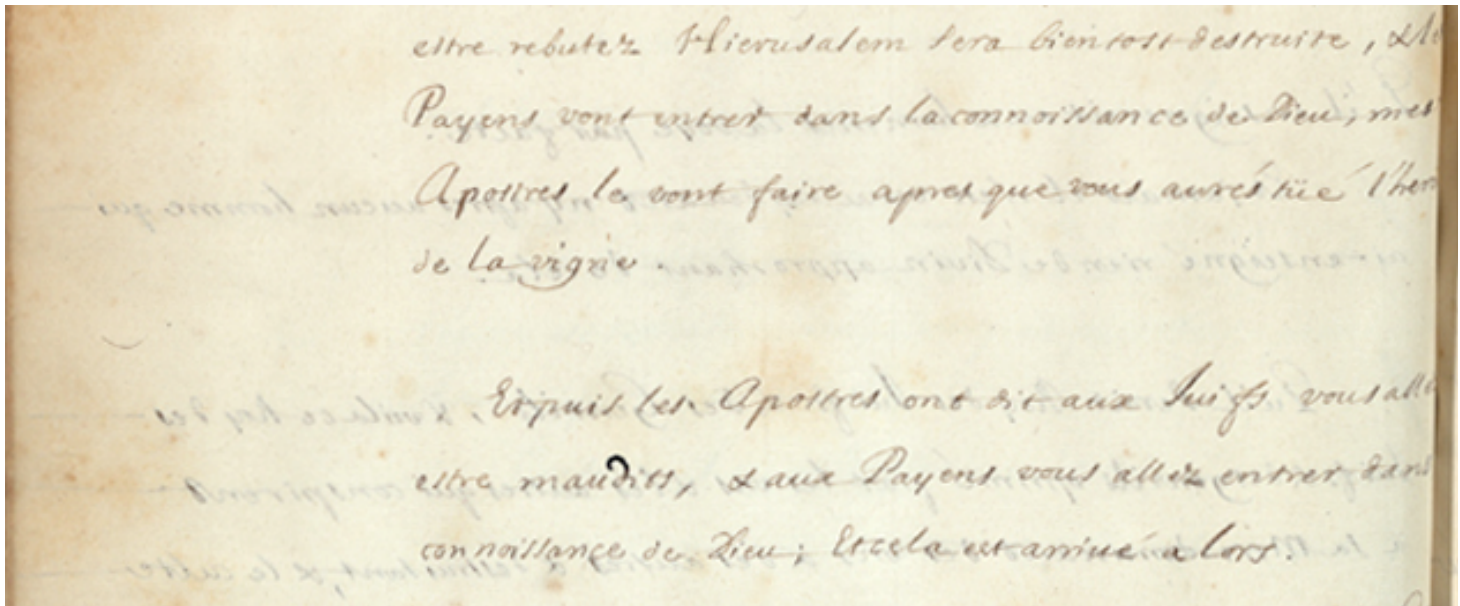 estre rebutez Hierusalem sera bien tost destruite, & le
Payens vont entrer dans la connoissance de Dieu, mes
Apostres le vont faire apres que vous aurés tüé l'her
de la vigne.
Et puis les Apostres ont dit aux Juifs vous alle
estre maudits, & aux Payens vous allez entrer dans
connoissance de Dieu; Et cela est arriué alors.